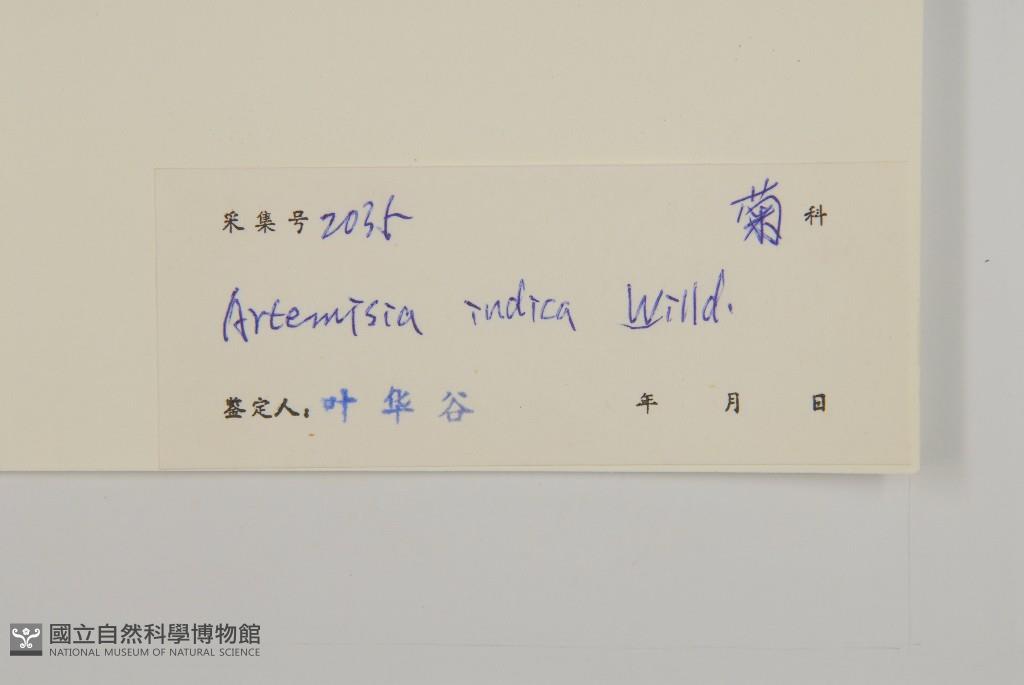 采集号 2035 菊 科
Artemisia indica Willd.
鉴定人: 叶华谷 年 月 日
國立自然科學博物館
NATIONAL MUSEUM OF NATURAL SCIENCE